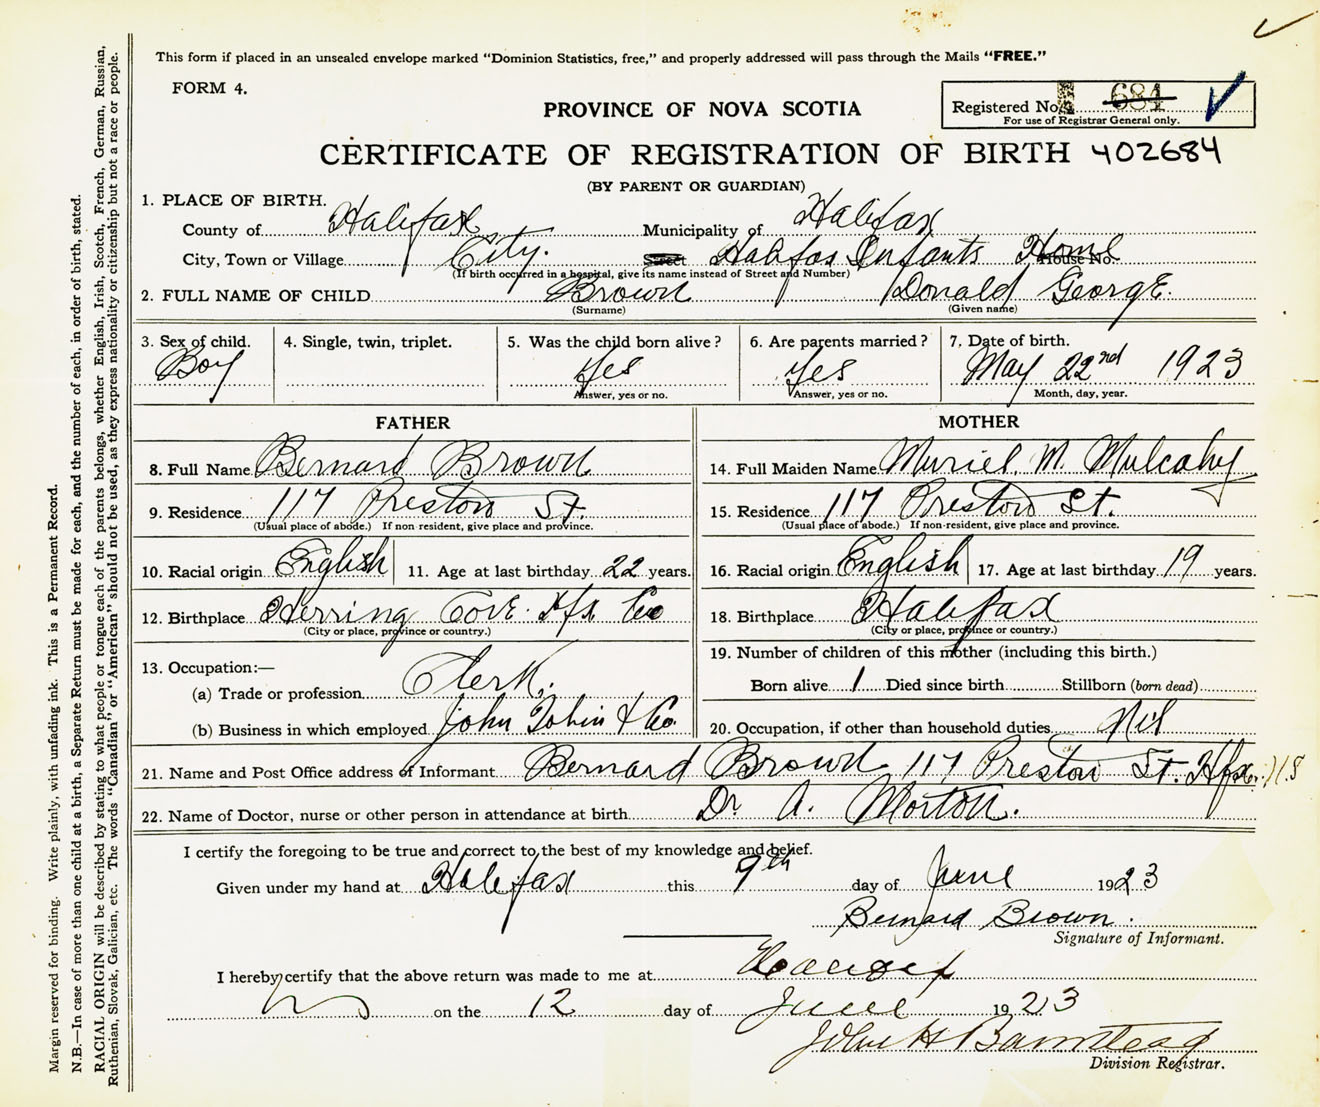 This form if placed in an unsealed envelope marked "Dominion Statistics, free," and properly addressed will pass through the Mails "FREE."
FORM 4.
Registered No. 684
For use of Registrar General only.
PROVINCE OF NOVA SCOTIA
CERTIFICATE OF REGISTRATION OF BIRTH 402684
(BY PARENT OR GUARDIAN)
1. PLACE OF BIRTH.
County of Halifax Municipality of Halifax
City, Town or Village City. Street Halifax Infants Home House No.
(If birth occurred in a hospital, give its name instead of Street and Number)
2. FULL NAME OF CHILD Brown Donald George.
(Surname) (Given name)
3. Sex of child. 4. Single, twin, triplet. 5. Was the child born alive? 6. Are parents married? 7. Date of birth.
Boy Yes Yes May 22nd 1923
Answer, yes or no. Answer, yes or no. Month, day, year.
FATHER MOTHER
8. Full Name Bernard Brown 14. Full Maiden Name Muriel. M. Mulcahy
9. Residence 117 Preston St. 15. Residence 117 Preston St.
(Usual place of abode.) If non-resident, give place and province. (Usual place of abode.) If non-resident, give place and province.
10. Racial origin English 11. Age at last birthday 22 years. 16. Racial origin English 17. Age at last birthday 19 years.
12. Birthplace Herring Cove. Hfx Co 18. Birthplace Halifax
(City or place, province or country.) (City or place, province or country.)
13. Occupation:— 19. Number of children of this mother (including this birth.)
(a) Trade or profession Clerk. Born alive 1 Died since birth Stillborn (born dead)
(b) Business in which employed John Tobin & Co. 20. Occupation, if other than household duties Nil
21. Name and Post Office address of Informant Bernard Brown 117 Preston St. Hfx. N.S
22. Name of Doctor, nurse or other person in attendance at birth Dr A. Morton.
I certify the foregoing to be true and correct to the best of my knowledge and belief.
Given under my hand at Halifax this 9th day of June 1923
Bernard Brown.
Signature of Informant.
I hereby certify that the above return was made to me at Halifax
on the 12 day of June 1923
John H Barnstead
Division Registrar.
Margin reserved for binding. Write plainly, with unfading ink. This is a Permanent Record.
N.B.—In case of more than one child at a birth, a Separate Return must be made for each, and the number of each, in order of birth, stated.
RACIAL ORIGIN will be described by stating to what people or tongue each of the parents belongs, whether English, Irish, Scotch, French, German, Russian,
Ruthenian, Slovak, Galician, etc. The words "Canadian" or "American" should not be used, as they express nationality or citizenship but not a race or people.